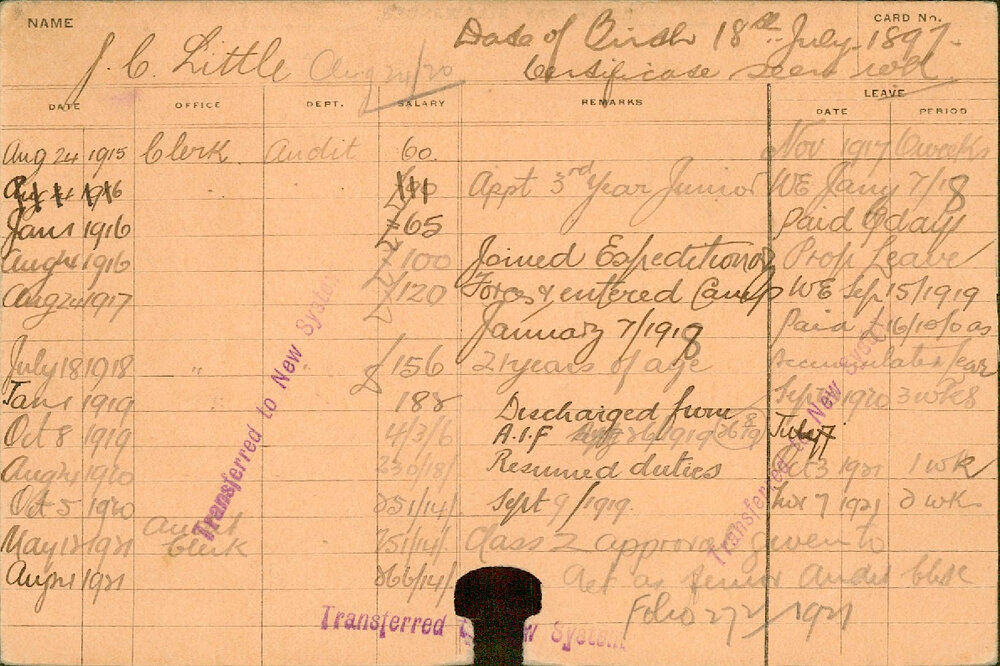 NAME
J. C. Little Aug 24/20
Date of Birth 18th July 1897.
Certificate seen
CARD No.
DATE OFFICE DEPT. SALARY REMARKS LEAVE
DATE PERIOD
Aug 24 1915 Clerk Audit 60. Nov 1917 weeks
1916 Appt 3rd Year Junior WE Jany 7/18
Jan 1 1916 65 Paid days
Aug 24 1916 100 Joined Expeditionary Prop Leave
Aug 24 1917 120 Forces & entered Camp WE Sep 15/1919
January 7/1918 Paid
July 18 1918 " " 156 21 years of age Accumulated
Jan 1 1919 188 Discharged from Sept 1920 3 wks
Oct 8 1919 4/3/6 A.I.F July
Aug 24 1920 230/18/ Resumed duties Oct 3 1921 1 wk
Oct 5 1920 251/14/ Sept 9/1919. Nov 7 1921 2 wks
May 12 1921 Audit Clerk 251/14/ Class 2 approval given to
Aug 1921 266/14/ Act as Senior Audit Clerk
Folio 272/1921
Transferred to New System
Transferred to New System
Transferred to New System